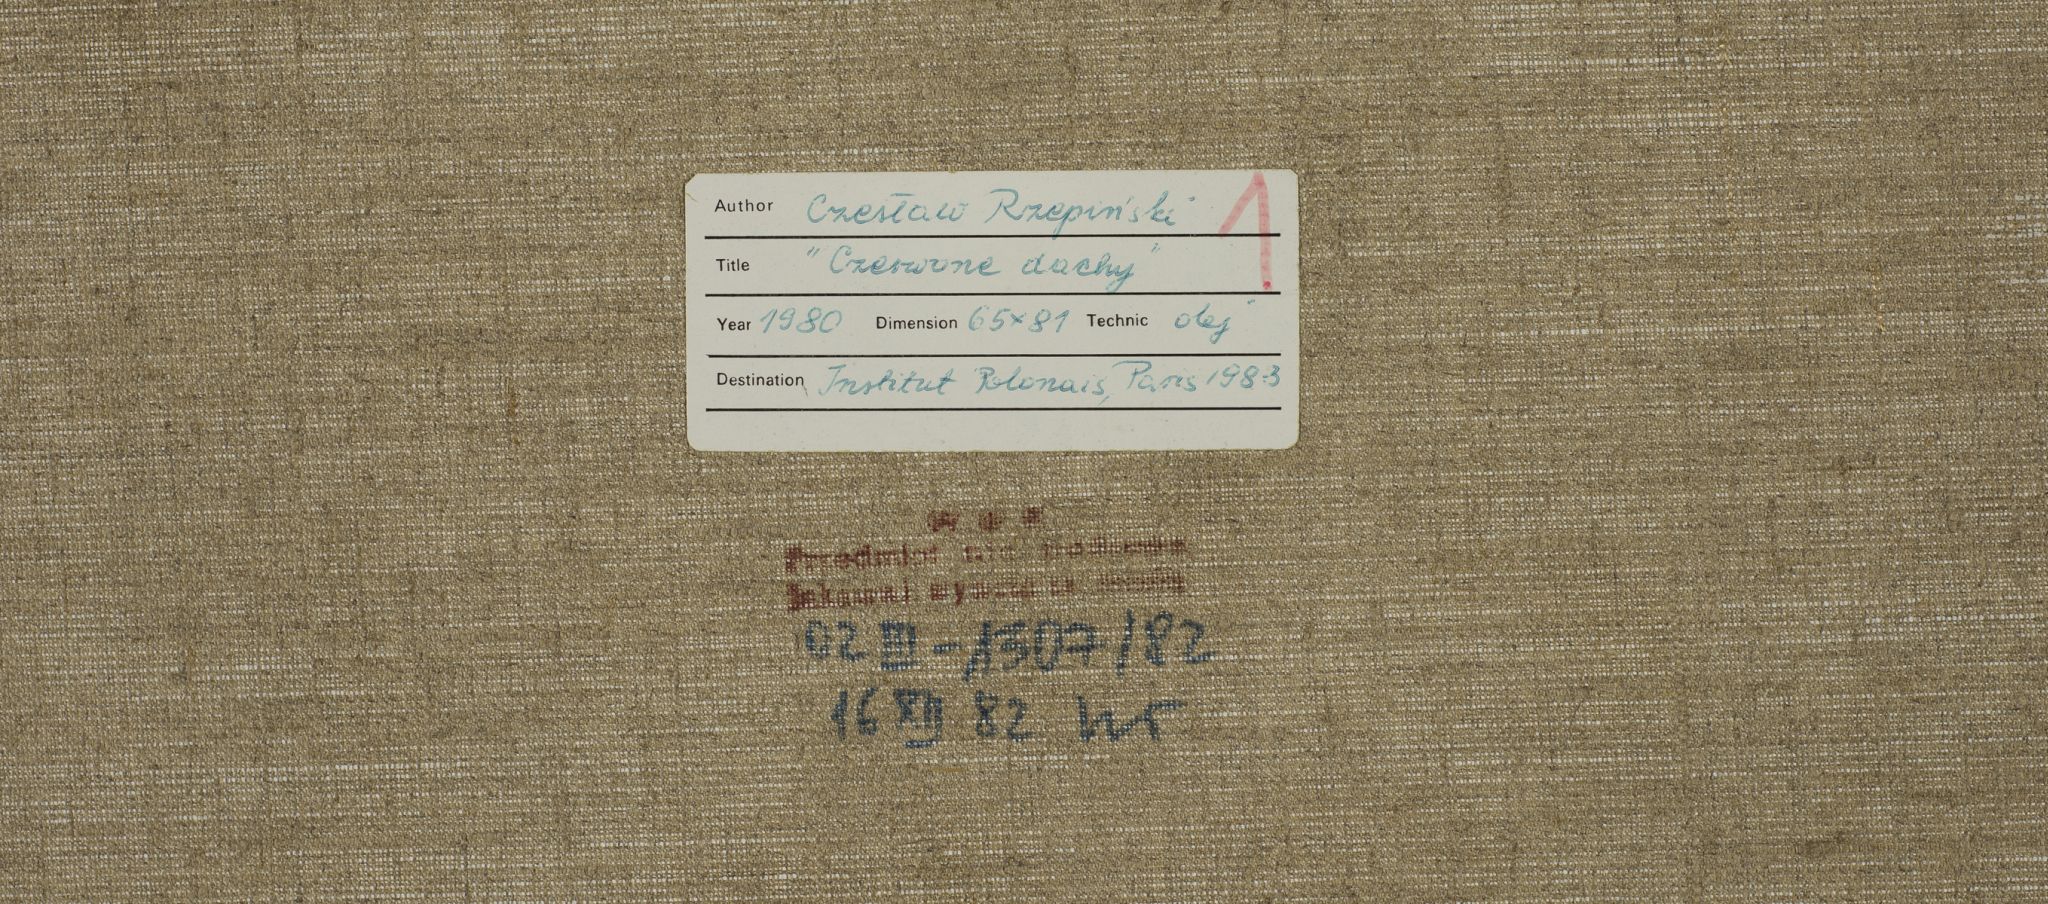 Author Czesław Rzepiński 1
Title "Czerwone dachy"
Year 1980 Dimension 65×81 Technic olej
Destination Institut Polonais, Paris 1983
Przedmiot nie
wywozu
02 III - 1307/82
16 XII 82